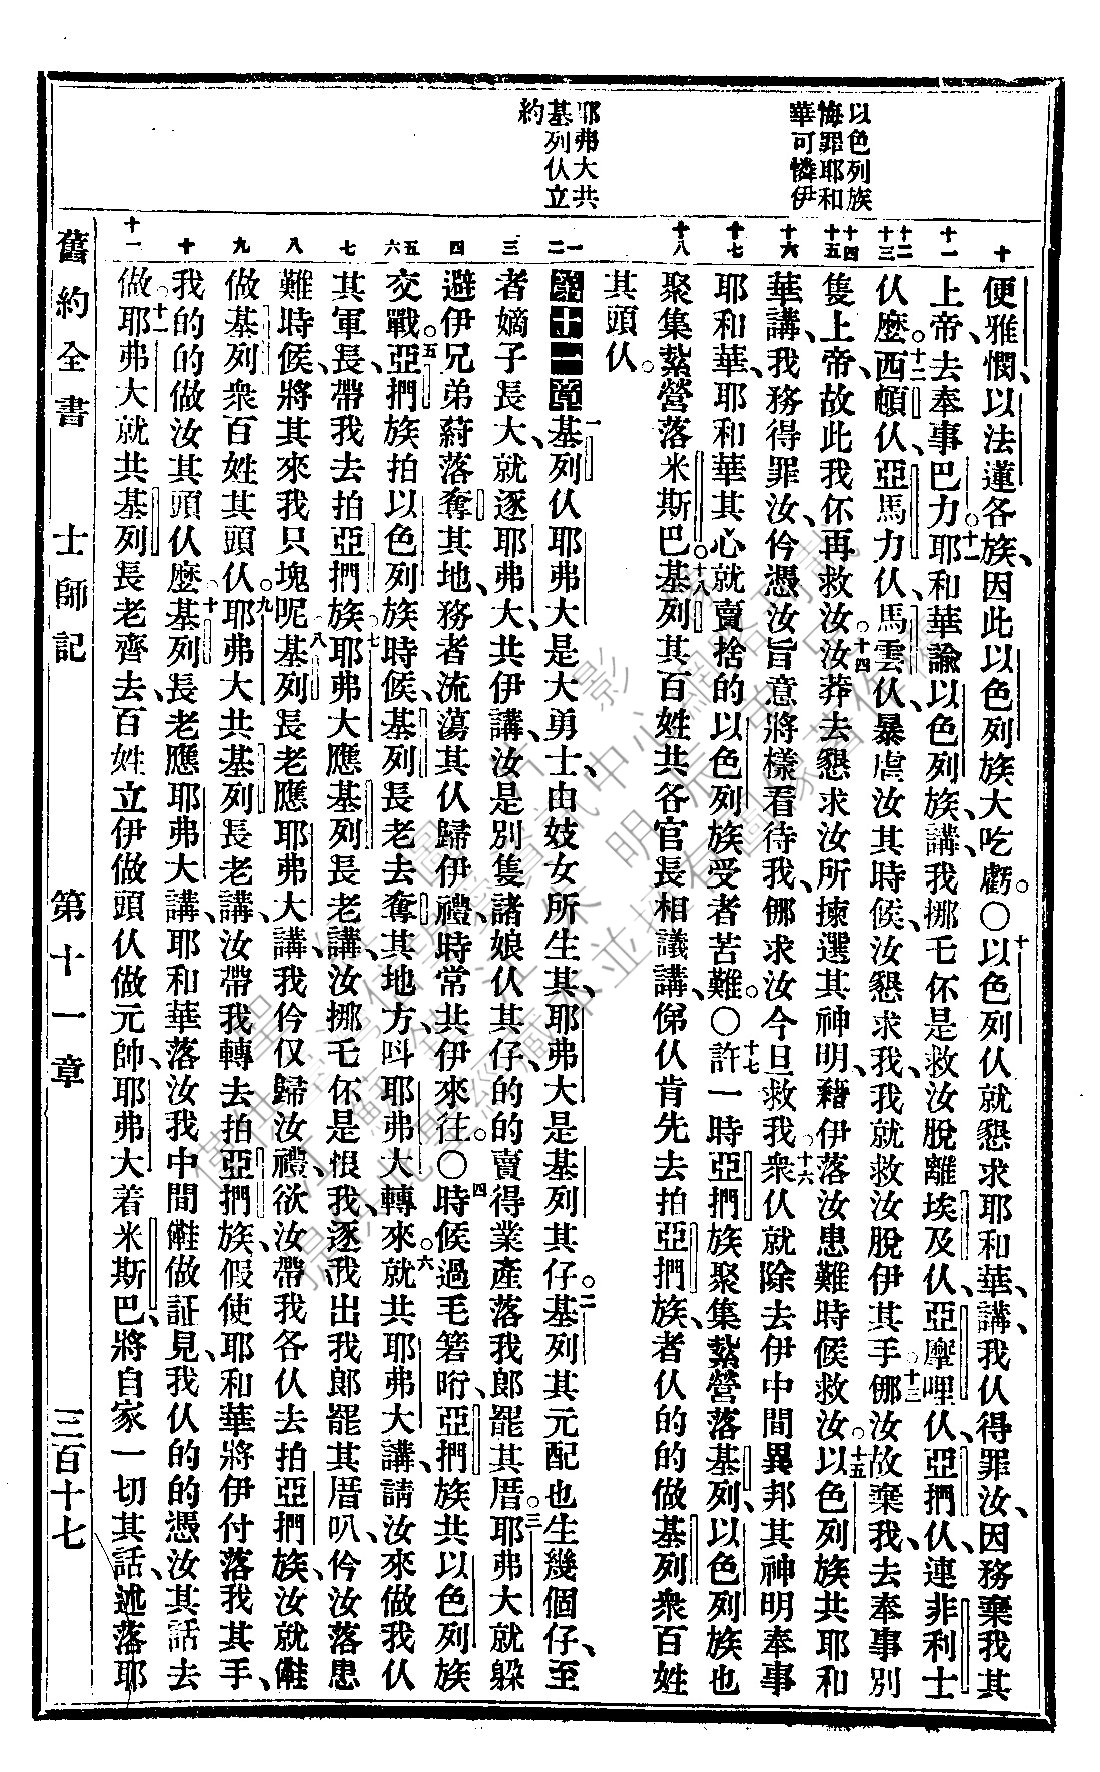 以色列族
悔罪耶和
華可憐伊
耶弗大共
基列仫立
約
十
十一
十二 十三
十四 十五
十六
十七
十八
一 二
三
四
五 六
七
八
九
十
十一
便雅憫、以法蓮各族、因此以色列族大吃虧。〇十以色列仫就懇求耶和華、講、我仫得罪汝、因務棄我其
上帝、去奉事巴力。十一耶和華諭以色列族、講、我挪乇伓是救汝脫離埃及仫、亞摩哩仫、亞捫仫、連非利士
仫麽。十二西頓仫、亞馬力仫、馬雲仫、暴虐汝其時候、汝懇求我、我就救汝脫伊其手。十三㑚汝故棄我、去奉事別
隻上帝、故此我伓再救汝。十四汝莽去懇求汝所揀選其神明、藉伊落汝患難時候救汝。十五以色列族共耶和
華講、我務得罪汝、仱憑汝旨意將樣看待我、㑚求汝今旦救我。十六衆仫就除去伊中間異邦其神明、奉事
耶和華、耶和華其心就賣捨的以色列族受者苦難。〇十七許一時亞捫族聚集紮營落基列、以色列族也
聚集紮營落米斯巴。十八基列其百姓共各官長相議講、俤仫肯先去拍亞捫族、者仫的的做基列衆百姓
其頭仫。
第十一章 一基列仫耶弗大是大勇士、由妓女所生其、耶弗大是基列其仔。二基列其元配也生幾個仔、至
者嫡子長大、就逐耶弗大、共伊講、汝是別隻諸娘仫其仔、的的賣得業產落我郎罷其厝。三耶弗大就躲
避伊兄弟、𥿄落奪其地、務者流蕩其仫歸伊禮、時常共伊來往。〇四時候過毛箬𣆟、亞捫族共以色列族
交戰。五亞捫族拍以色列族時候、基列長老去奪其地方、呌耶弗大轉來。六就共耶弗大講、請汝來做我仫
其軍長、帶我去拍亞捫族。七耶弗大應基列長老講、汝挪乇伓是恨我、逐我出我郎罷其厝叭、仱汝落患
難時候、將其來我只塊呢。八基列長老應耶弗大講、我仱仅歸汝禮、欲汝帶我各仫去拍亞捫族、汝就㒕
做基列衆百姓其頭仫。九耶弗大共基列長老講、汝帶我轉去拍亞捫族、假使耶和華將伊付落我其手、
我的的做汝其頭仫麽。十基列長老應耶弗大講、耶和華落汝我中間㒕做証見、我仫的的憑汝其話去
做。十一耶弗大就共基列長老齊去、百姓立伊做頭仫做元帥、耶弗大着米斯巴、將自家一切其話、述落耶
舊約全書 士師記 第十一章 三百十七